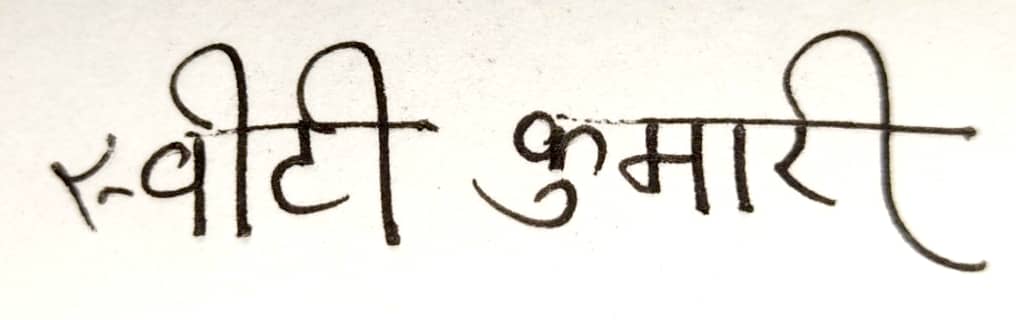 स्वीटी कुमारी